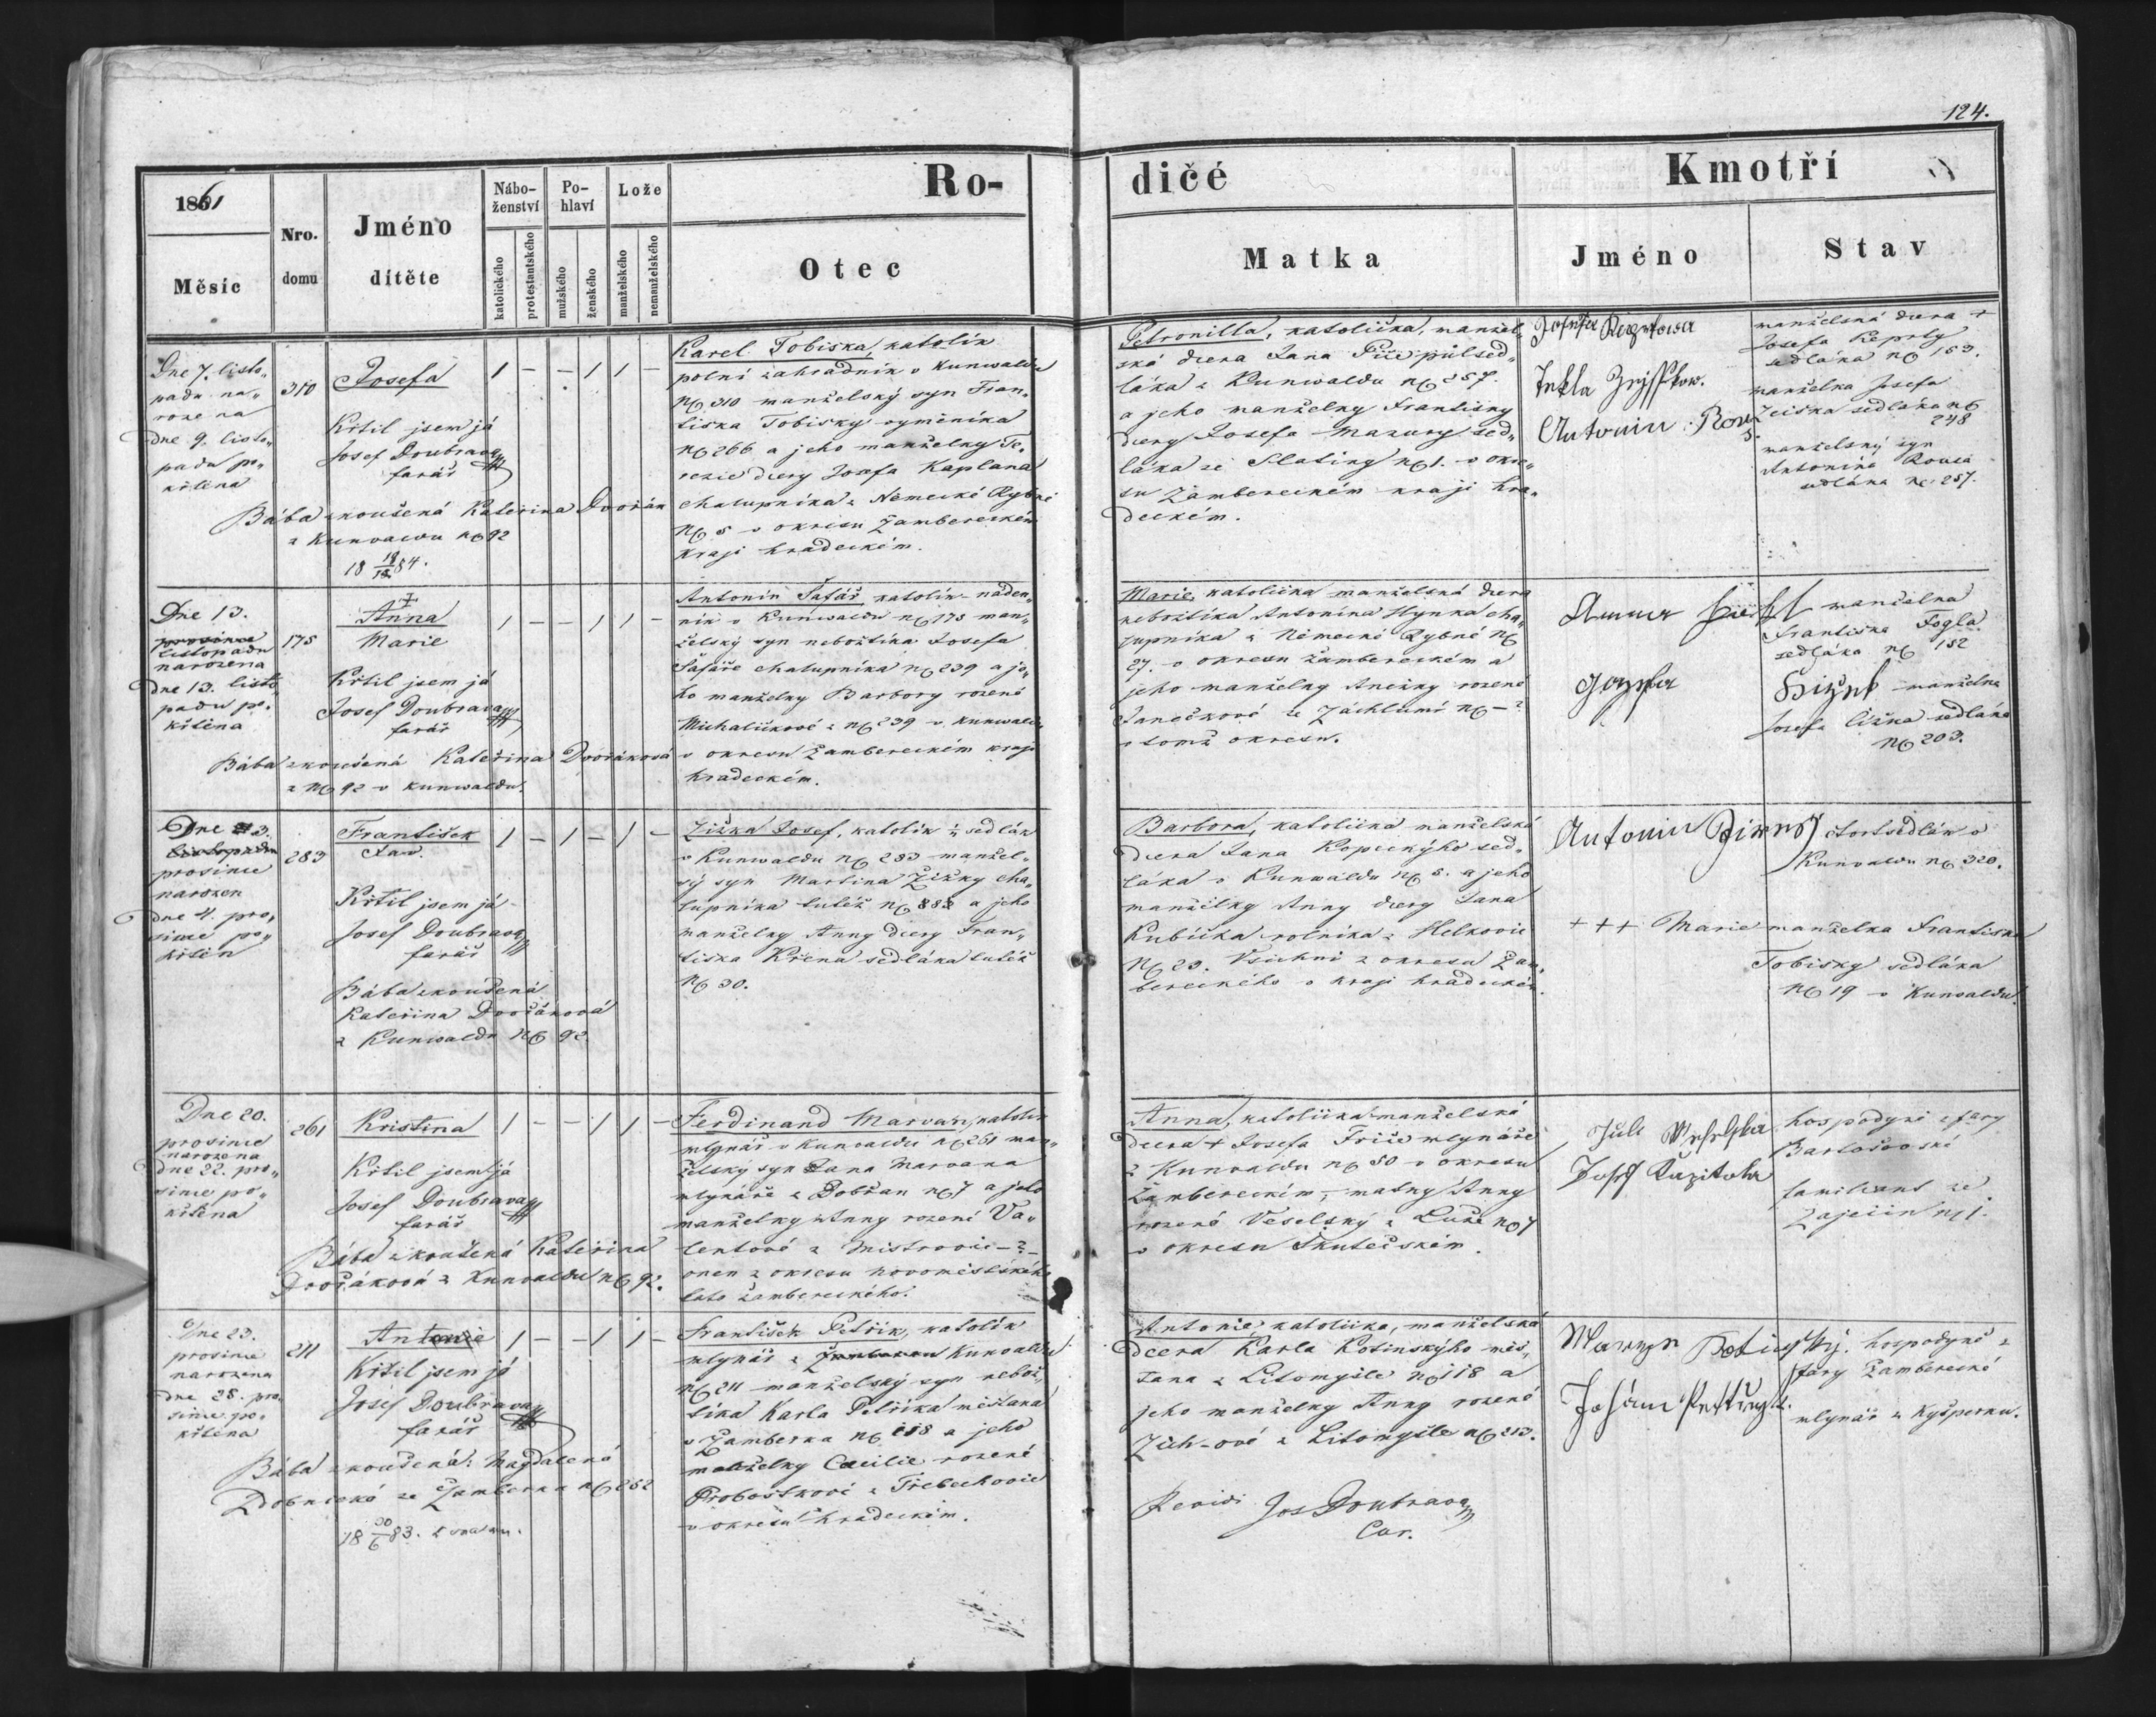 124.
Ro-
dičé
Kmotří
1861
Měsíc
Nro.
domu
Jméno
dítěte
Nábo-
ženství
Po-
hlaví
Lože
katolického
protestantského
mužského
ženského
manželského
nemanželského
Otec
Matka
Jméno
Stav
Dne 7. listo„
padu na„
rozena
dne 9. listo„
padu po„
křtěna
310
Josefa
1 – – 1 1 –
Křtil jsem já
Josef Doubrava
farář
Bába zkoušená Kateřina Dvořák
z Kunvaldu N 92
18 84.
Karel Tobiska, katolík
polní zahradník v Kunwaldu
N 310 manželský syn Fran„
tiska Tobisky výměníka
N 266 a jeho manželky Te„
rezie dcery Josefa Kaplana
chalupníka z Německé Rybné
N 5 v okresu Žambereckém
kraji hradeckém.
Petronilla, katolička, manžel„
ská dcera Jana Píče půlsed„
láka z Kunwaldu N 257.
a jeho manželky Františky
dcery Josefa Mazury sed„
láka ze Slatiny N 1. v okre„
su Žambereckém kraji hra„
deckém.
Josefa
Tekla
Antonin
manželská dcera +
Josefa Reprty
sedláka N 153.
manželka Josefa
sedláka N
248
manželský syn
Antonína
sedláka N 257.
Dne 13.
prosince
listopadu
narozena
dne 13. listo
padu po„
křtěna
175
Anna
Marie
1 – – 1 1 –
Křtil jsem já
Josef Doubrava
farář
Bába zkoušená Kateřina Dvořáková
z N 92 v Kunwaldu.
Antonín Šafář katolík náden„
ník v Kunwaldu N 175 man„
želský syn nebožtíka Josefa
Šafáře chalupníka N 239 a je„
ho manželky Barbory rozené
Michaličkové z N 239 v Kunwaldu
v okresu Žambereckém kraji
hradeckém.
Marie, katolička manželská dcera
nebožtíka Antonína Hynka cha„
lupníka z Německé Rybné N
27. v okresu Žambereckém a
jeho manželky Anežky rozené
Janečkové ze Záchlumí N – ?
v tomž okresu.
Anna
manželka
Františka Fogla
sedláka N 152
manželka
Josefa Čížka sedláka
N 203.
Dne 3.
listopadu
prosince
narozen
dne 4. pro„
since po„
křtěn
283
František
Jan.
1 – 1 – 1 –
Křtil jsem já
Josef Doubrava
farář
Bába zkoušená
Kateřina Dvořáková
z Kunwaldu N 92.
Žižka Josef, katolík ½ sedlák
v Kunwaldu N 283 manžel„
ský syn Martina Žižky cha„
lupníka tutéž N a jeho
manželky Anny dcery Fran„
tiska Křena sedláka tutéž
N 30.
Barbora, katolička manželská
dcera Jana Kopeckýho sed„
láka v Kunwaldu N 5. a jeho
manželky Anny dcery Jana
Kubíčka rolníka z Helkovic
N 23. Všichni z okresu Žam„
bereckého v kraji hradeckém.
Antonin
čtvrtsedlák v
Kunvaldu N 320.
+++ Marie manželka Františka
Tobisky sedláka
N 19 v Kunvaldu.
Dne 20.
prosince
narozena
dne 22. pro„
since po„
křtěna
261
Kristina
1 – – 1 1 –
Křtil jsem já
Josef Doubrava
farář
Bába zkoušená Kateřina
Dvořáková z Kunvaldu N 92.
Ferdinand Marvan, katolík
mlynář v Kunvaldu N 261 man„
želský syn Jana Marvana
mlynáře z Dobřan N 7 a jeho
manželky Anny rozené Va„
lentové z Mistrovic – ? –
onen z okresu novoměstského
tato žambereckého.
Anna, katolička manželská
dcera + Josefa Friče mlynáře
z Kunvaldu N 50 v okresu
Žambereckém, matky Anny
rozené Veselský z Luže N 7
v okresu Skutečském.
hospodyně z fary
Bartošovské
Josef Kapitola
familiant ze
Zaječin N 1.
Dne 23.
prosince
narozena
dne 28. pro
since po„
křtěna
211
Antonie
1 – – 1 1 –
Křtil jsem já
Josef Doubrava
farář
Bába zkoušená: Magdalena
Zdobnická ze Žamberka N 252
18 83.
František Petřík, katolík
mlynář z Kunvaldu
N 211 manželský syn nebož„
tíka Karla Petříka měštana
v Žamberka N 118 a jeho
manželky Caecilie rozené
Proboštkové z Třebechovic
v okresu hradeckém.
Antonie, katolička, manželská
dcera Karla Kotinskýho měš„
tana z Litomyšle N 118 a
jeho manželky Anny rozené
Zich-ové z Litomyšle N 213.
hospodyně z
fary Žamberecké
Johann
mlynář z Kyšperku.
Revidi Jos Doubrava
Cur.